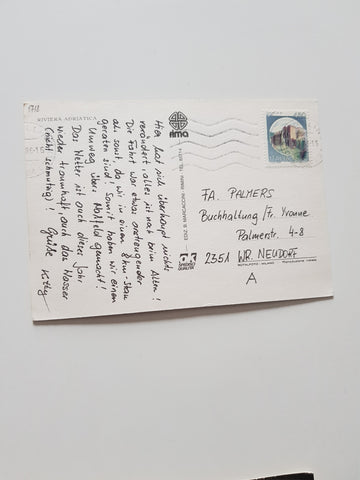 1712
RIVIERA ADRIATICA
Hier hat sich überhaupt nichts
verändert, alles ist noch beim Alten!
Die Fahrt war etwas anstrengender
als sonst, da wir in einen 8 km-Stau
geraten sind! Somit haben wir einen
Umweg übers gemacht!
Das Wetter ist auch dieses Jahr
wieder traumhaft, auch das Wasser
(nicht schmutzig)! Grüße Kitty
ama
FA. PALMERS
Buchhaltung/Fr. Yvonne
Palmerstr. 4-8
2351 WR. NEUDORF
A